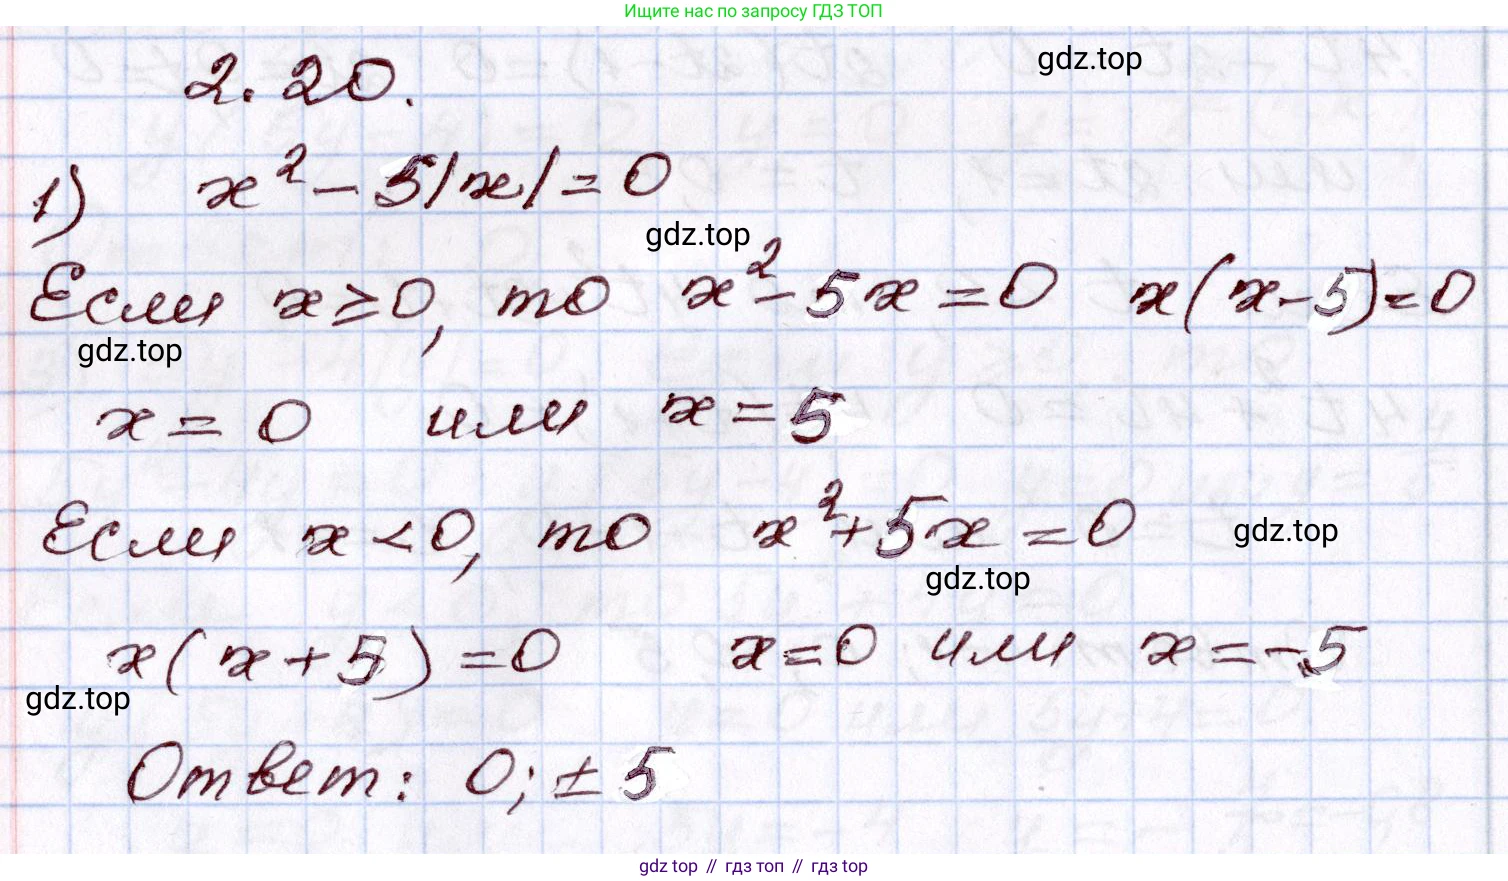 Ищите нас по запросу ГДЗ ТОП
gdz.top
2.20.
1) x² - 5|x| = 0
gdz.top
Если x ≥ 0, то x² - 5x = 0 x(x - 5) = 0
gdz.top
x = 0 или x = 5
Если x < 0, то x² + 5x = 0
gdz.top
gdz.top
x(x + 5) = 0 x = 0 или x = -5
gdz.top
Ответ: 0; ± 5
gdz.top // гдз топ // гдз top